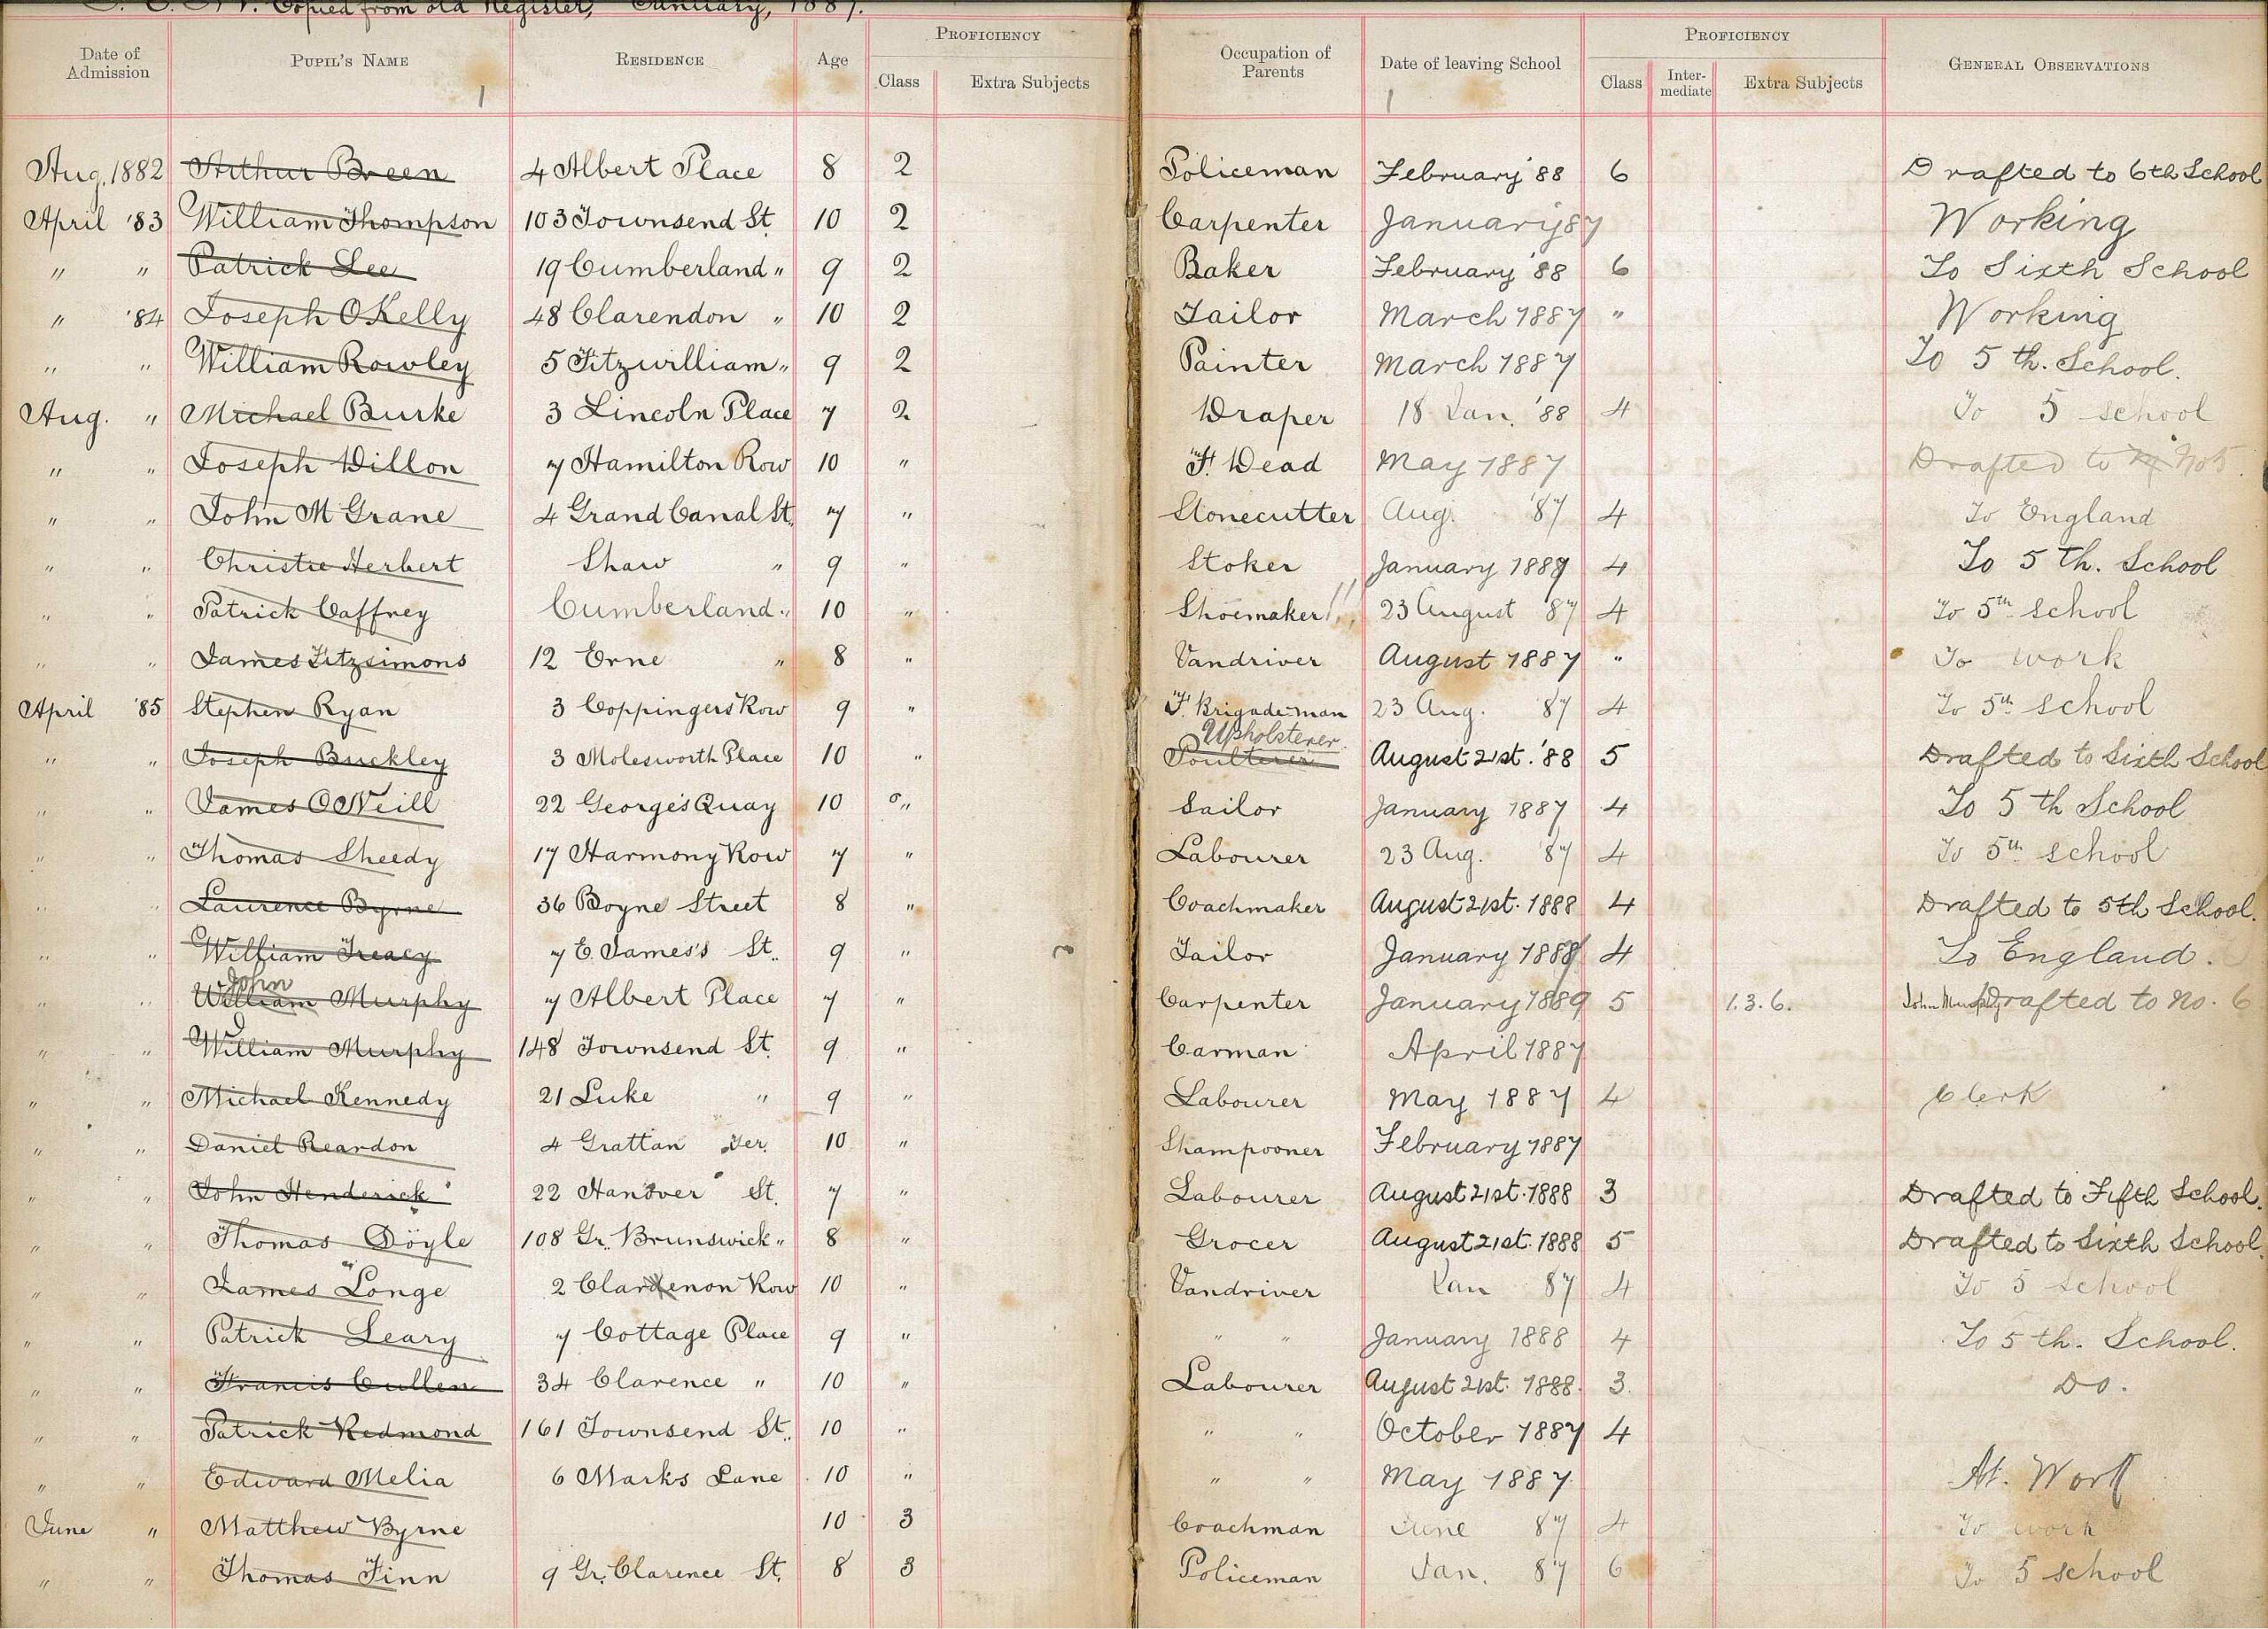 Copied from old Register, January, 1887.
Date of Admission PUPIL'S NAME RESIDENCE Age PROFICIENCY Class Extra Subjects Occupation of Parents Date of leaving School PROFICIENCY Class Inter-mediate Extra Subjects GENERAL OBSERVATIONS
1 1
Aug. 1882 Arthur Breen 4 Albert Place 8 2 Policeman February '88 6 Drafted to 6th School
April '83 William Thompson 103 Townsend St. 10 2 Carpenter January 87 Working
" " Patrick Lee 19 Cumberland " 9 2 Baker February '88 6 To Sixth School
" '84 Joseph O'Kelly 48 Clarendon " 10 2 Tailor March 1887 " Working
" " William Rowley 5 Fitzwilliam " 9 2 Painter March 1887 To 5th. School.
Aug. " Michael Burke 3 Lincoln Place 7 2 Draper 18 Jan. '88 4 To 5 school
" " Joseph Dillon 7 Hamilton Row 10 " F. Dead May 1887 Drafted to No 5.
" " John M Grane 4 Grand Canal St. 7 " Stonecutter Aug. '87 4 To England
" " Christie Herbert Shaw " 9 " Stoker January 1889 4 To 5th. School
" " Patrick Caffrey Cumberland " 10 " Shoemaker 23 August 87 4 To 5th school
" " James Fitzsimons 12 Erne " 8 " Vandriver August 1887 " To work
April '85 Stephen Ryan 3 Coppingers Row 9 " F. Brigade-man 23 Aug. 87 4 To 5th school
Upholsterer.
" " Joseph Buckley 3 Molesworth Place 10 " Poulterer August 21st. '88 5 Drafted to Sixth School
" " James O'Neill 22 George's Quay 10 " Sailor January 1887 4 To 5th School
" " Thomas Sheedy 17 Harmony Row 7 " Labourer 23 Aug. 87 4 To 5th school
" " Laurence Byrne 36 Boyne Street 8 " Coachmaker August 21st. 1888 4 Drafted to 5th School.
" " William Treacy 7 E. James's St. 9 " Tailor January 1888 4 To England.
John
" " William Murphy 7 Albert Place 7 " Carpenter January 1889 5 1.3.6. John Murphy Drafted to No. 6
" " William Murphy 148 Townsend St. 9 " Carman April 1887
" " Michael Kennedy 21 Luke " 9 " Labourer May 1887 4 Clerk
" " Daniel Reardon 4 Grattan Ter. 10 " Shampooner February 1887
" " John Henderick 22 Hanover St. 7 " Labourer August 21st. 1888 3 Drafted to Fifth School.
" " Thomas Doyle 108 Gr. Brunswick " 8 " Grocer August 21st. 1888 5 Drafted to Sixth School.
" " James Longe 2 Clarenon Row 10 " Vandriver Jan 87 4 To 5 school
" " Patrick Leary 7 Cottage Place 9 " " " January 1888 4 To 5th. School.
" " Francis Cullen 34 Clarence " 10 " Labourer August 21st. 1888. 3. Do.
" " Patrick Redmond 161 Townsend St. 10 " " " October 1887 4
" " Edward Melia 6 Marks Lane 10 " " " May 1887 At. Work
June " Matthew Byrne 10 3 Coachman June 87 4 To work
" " Thomas Finn 9 Gr. Clarence St. 8 3 Policeman Jan. 87 6 To 5 school